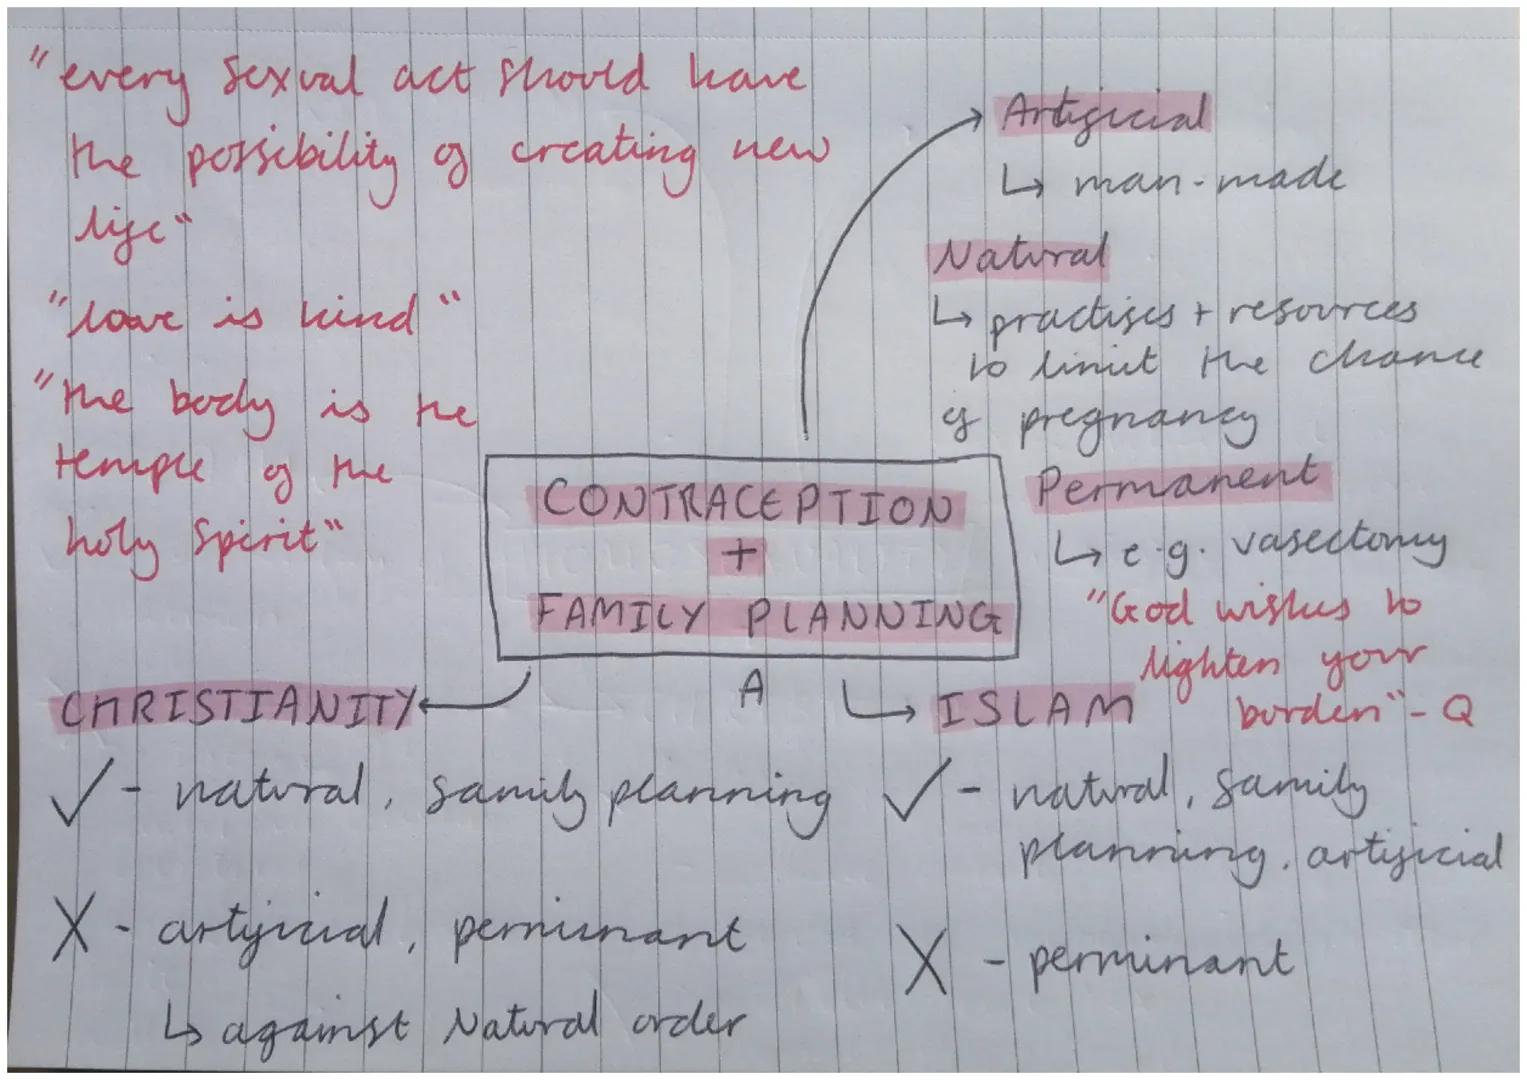 "every sexual act should have
the possibility of creating new
life"
"love is kind"
"the body is the
temple of the
holy Spirit"
Artificial
↳ man-made
Natural
↳ practises + resources
to limit the chance
of pregnancy
Permanent
↳ e.g. vasectomy
"God wishes to
lighten your
burden" - Q
CONTRACEPTION
+
FAMILY PLANNING
A
CHRISTIANITY
✓ - natural, family planning
X - artificial, perminant
↳ against Natural order
ISLAM
✓ - natural, family
planning, artificial
X - perminant